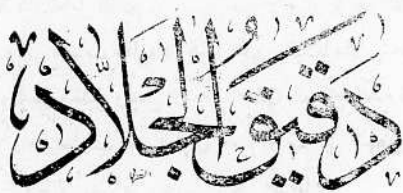 دَقِيقُ الجَلَّادِ